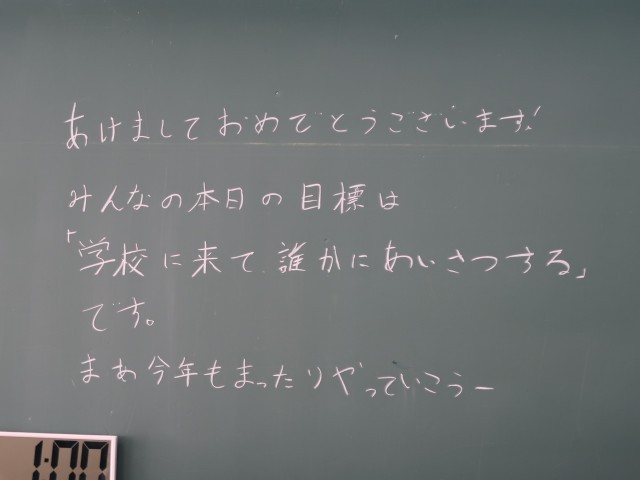 あけましておめでとうございます!
みんなの本日の目標は
「学校に来て、誰かにあいさつする」
です。
まあ今年もまったりやっていこうー